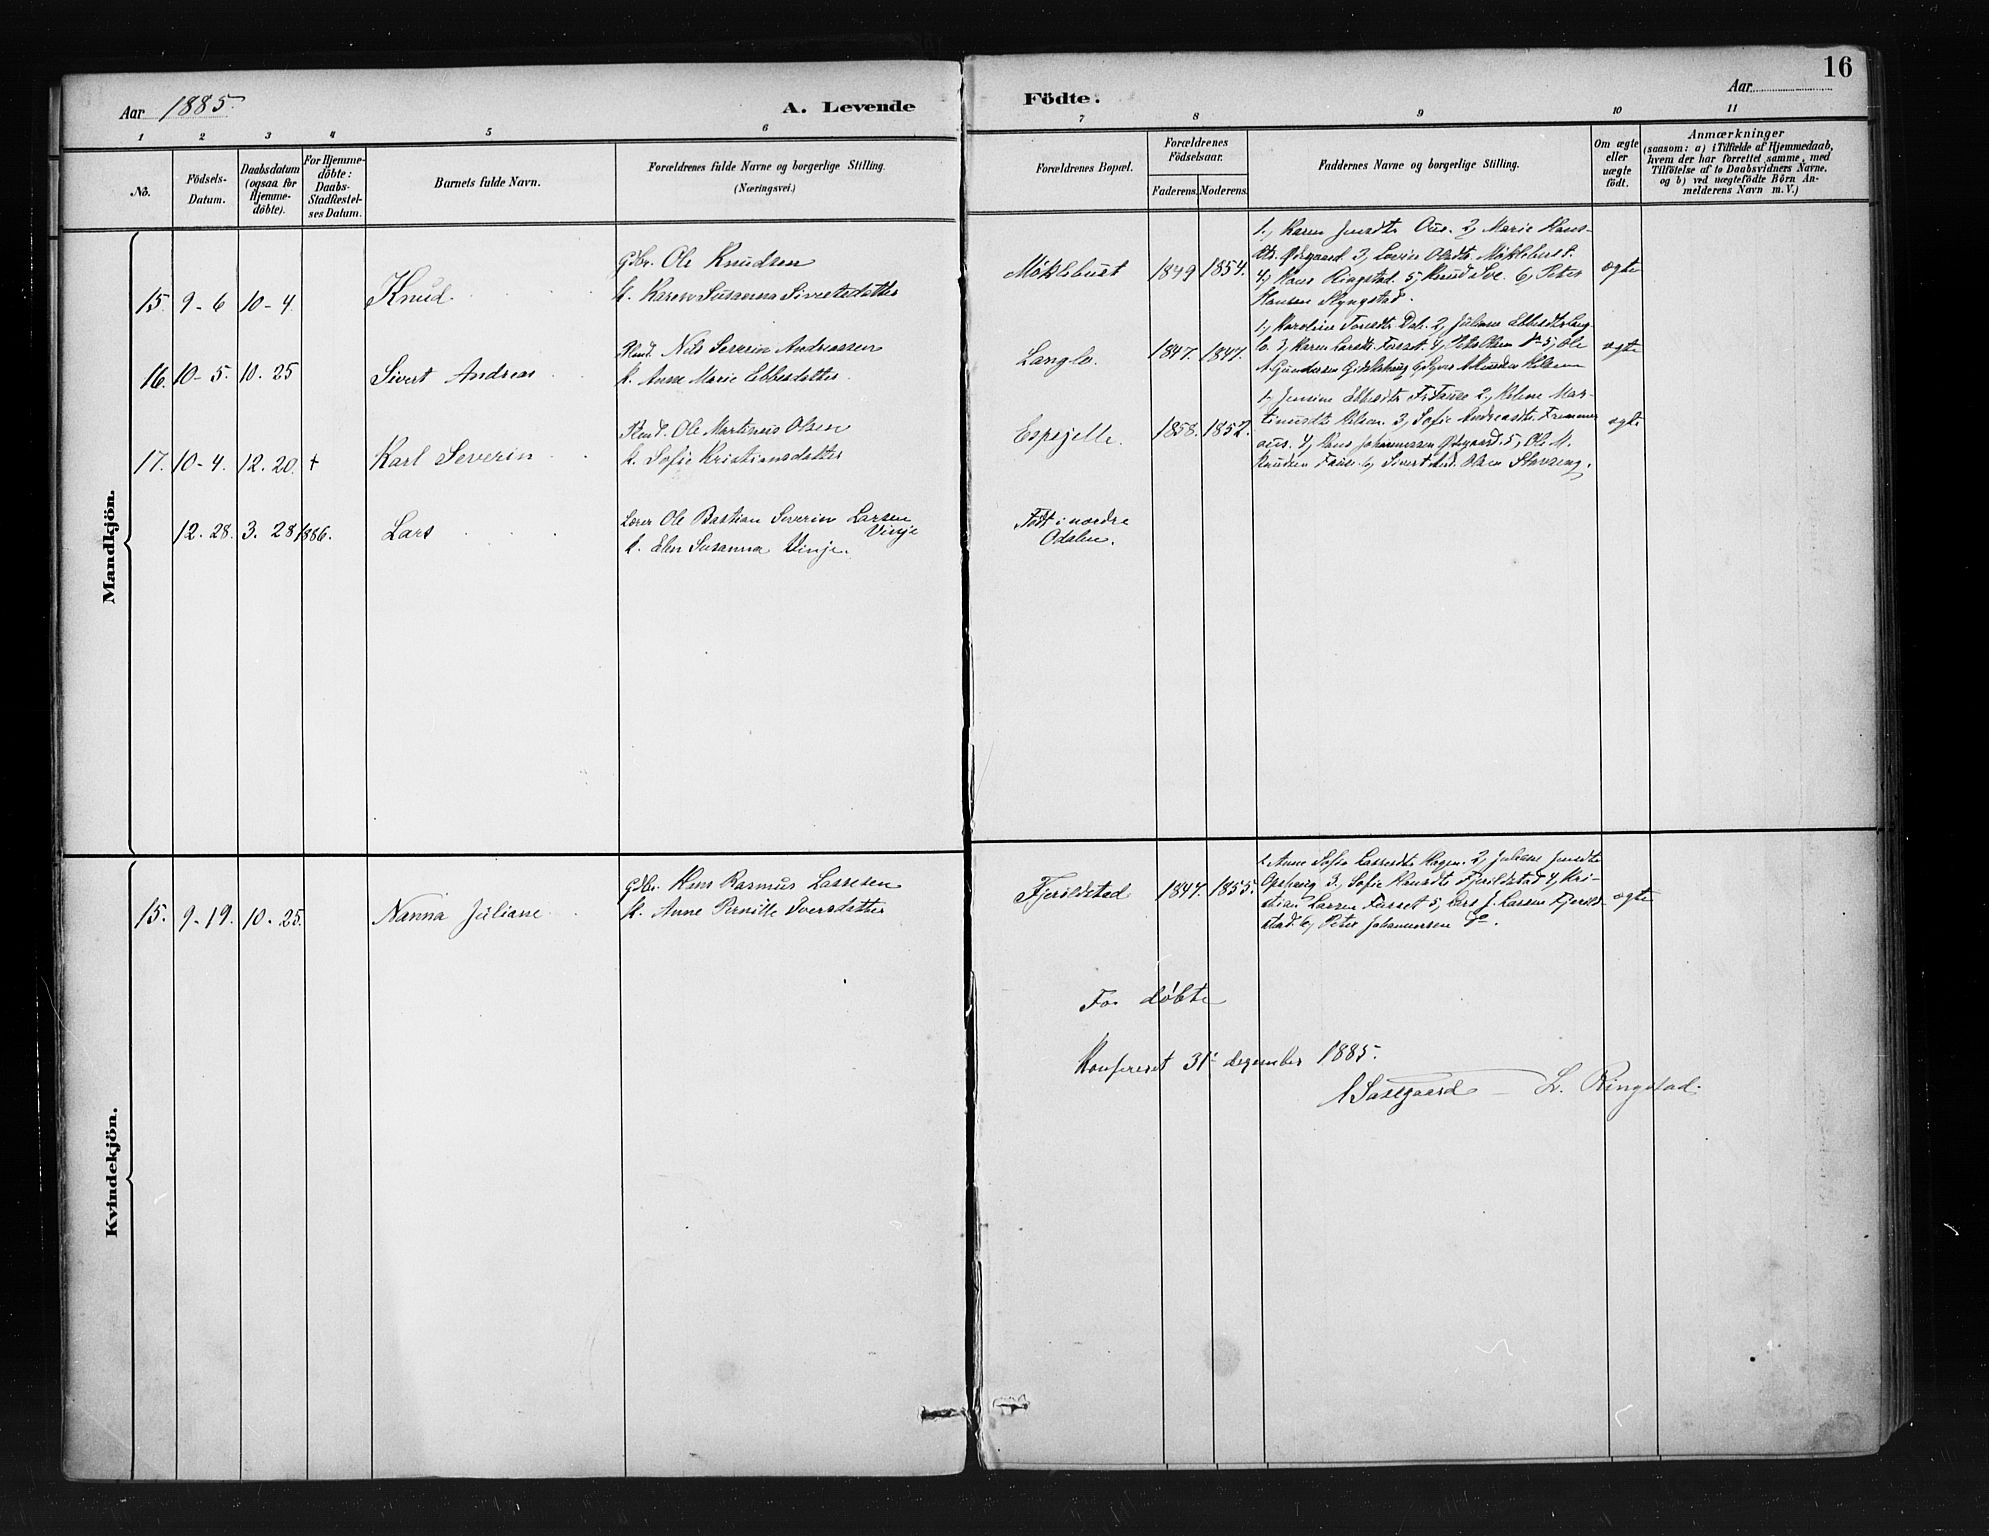 Aar 1885.
A. Levende
Födte.
Aar
16
1 2 3 4 5 6 7 8 9 10 11
Nô.
Födsels-
Datum.
Daabsdatum
(ogsaa for
Hjemme-
döbte).
For Hjemme-
döbte:
Daabs-
Stadfæstel-
ses Datum.
Barnets fulde Navn.
Forældrenes fulde Navne og borgerlige Stilling.
(Næringsvei.)
Forældrenes Bopæl.
Forældrenes
Födselsaar.
Faderens. Moderens.
Faddernes Navne og borgerlig Stilling.
Om ægte
eller
uægte
födt.
Anmærkninger
(saasom: a) i Tilfælde af Hjemmedaab,
hvem der har forrettet samme, med
Tilföielse af to Daabsvidners Navne,
og b) ved uægtefödte Börn An-
melderens Navn m. V.)
Mandkjön.
15. 9-6 10-4. Knud
Gdbr. Ole Knudsen
k. Karen Susanna Sivertsdatter
Möklebust 1849 1854.
1, Karen Jensdtr Aus. 2, Marie Hans-
dtr. Ødegaard 3, Lovise Olsdtr Möklebust.
4, Hans Ringstad. 5, Knud Sve. 6, Peter
Hansen Slyngstad.
ægte
16. 10-5. 10. 25 Sivert Andreas
Nils Severin Andreassen
k. Anne Marie Ebbesdatter.
Langlo. 1847. 1847.
1, Karoline
ægte
17. 10-4. 12. 20 + Karl Severin
Ole Martinus Olsen
k. Sofie Kristiansdatter
Espejelle. 1858. 1852.
1, Jensine Ebbesdtr Fr. Fause 2, Helene Mar-
tinusdtr Helsem 3, Sofie Andreasdtr. Fremmer
aus. 4, Hans Johannessen Ødegaard. 5, Ole M.
Knudsen Fause. 6, Sivert And. Olsen
ægte
12. 28. 3. 28 1886. Lars
Lærer Ole Bastian Severin Larsen
Vinje
k. Elen Susanna Vinje.
Födt i nordre
Odalen.
Kvindekjön.
15. 9-19. 10-25. Nanna Juliane
Gdbr. Hans Rasmus Lassesen
k. Anne Pernille Iversdatter
Fjørildstad 1847 1855.
1. Anne Sofie Lassesdtr Hagen. 2, Juliane Jensdtr
Opshaug 3, Sofie Hansdtr Fjørildstad 4, Kri-
stian Larsen Furset 5, Lars J. Larsen Fjørild-
stad. 6, Peter Johannessen do.
ægte
For døbte
Konfereret 31te dezember 1885.
Saxegaard — L. Ringstad.